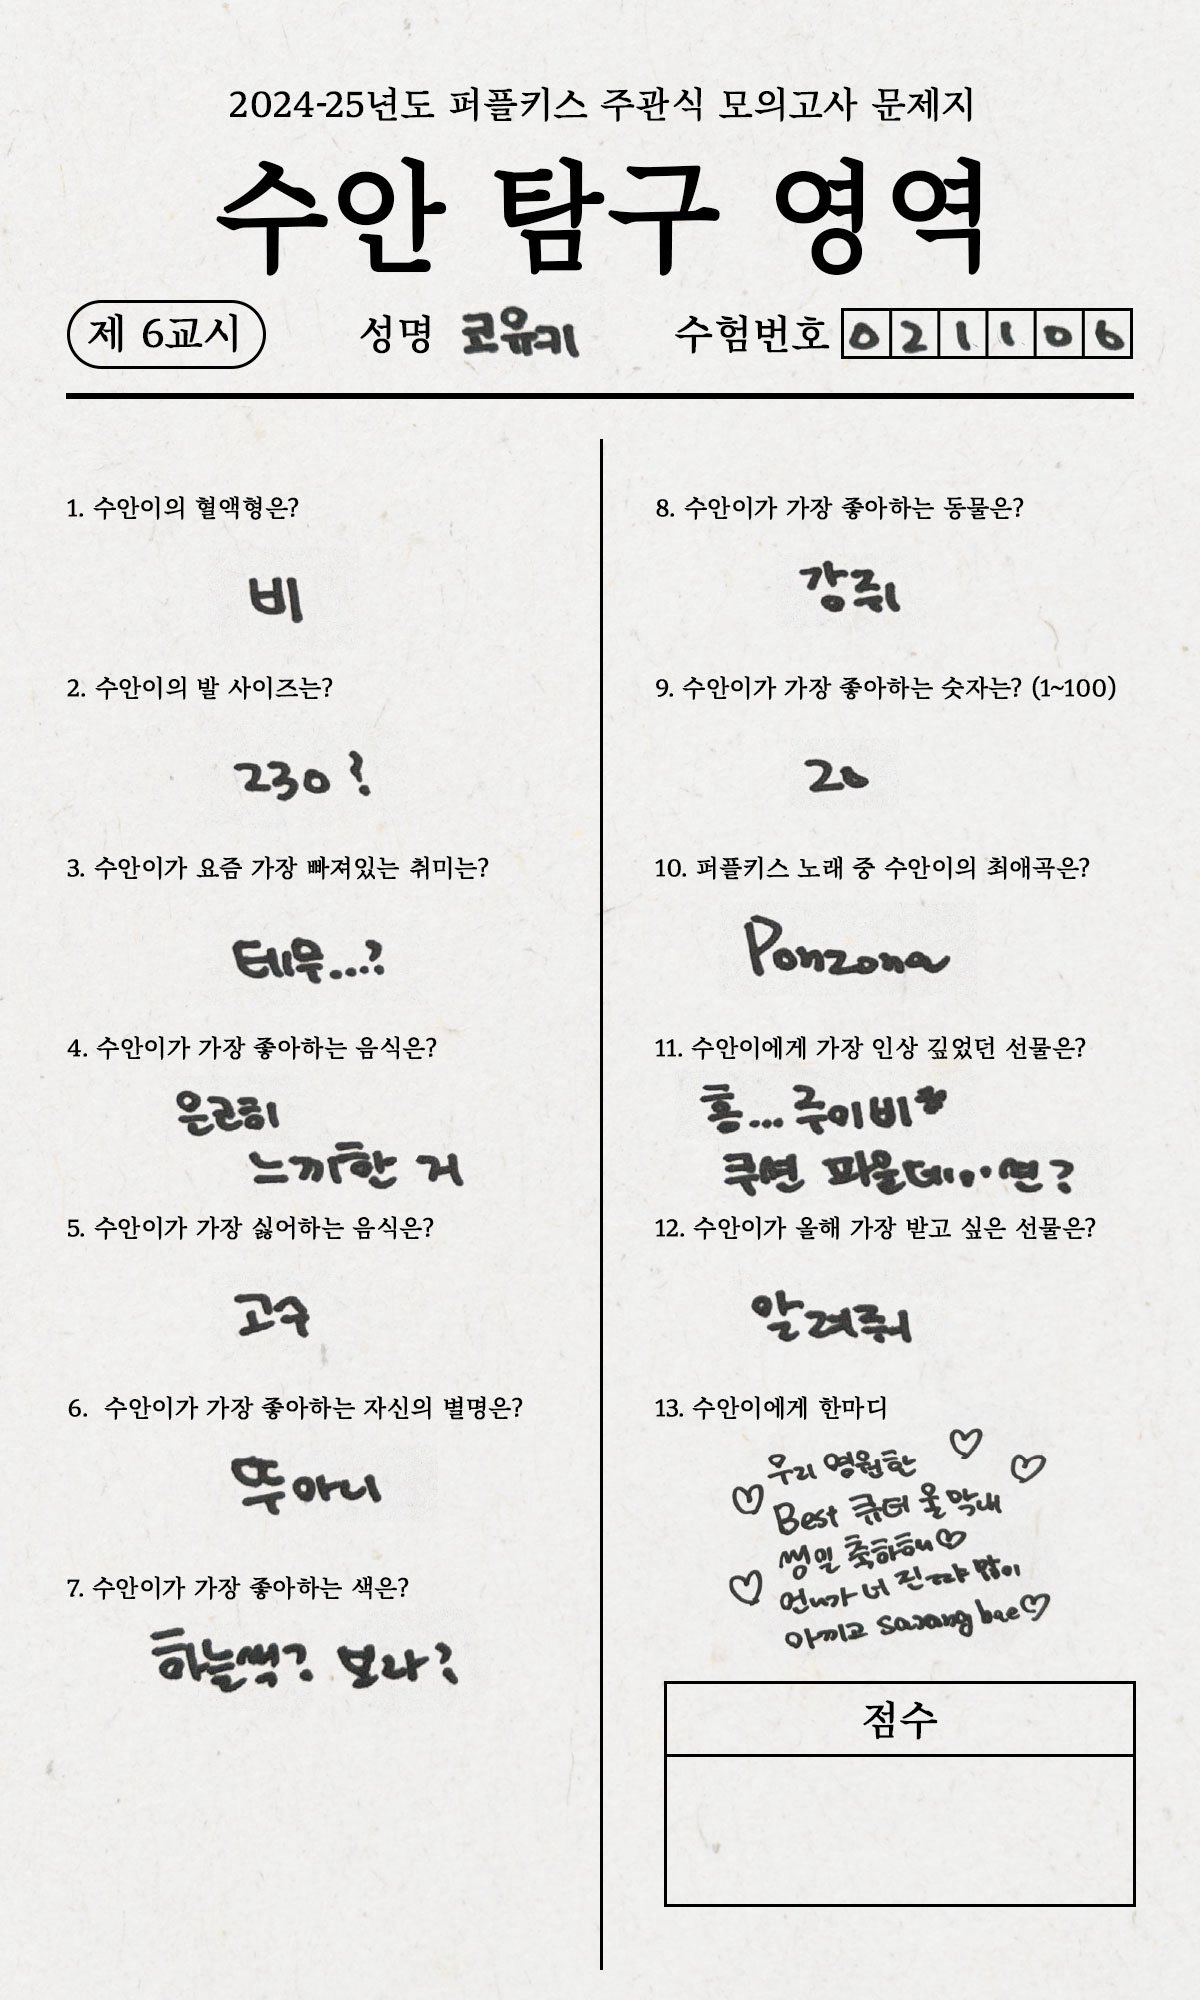 2024-25년도 퍼플키스 주관식 모의고사 문제지
수안 탐구 영역
제 6교시 성명 코유키 수험번호 021106
1. 수안이의 혈액형은?
비
2. 수안이의 발 사이즈는?
230?
3. 수안이가 요즘 가장 빠져있는 취미는?
테무...?
4. 수안이가 가장 좋아하는 음식은?
은근히
느끼한 거
5. 수안이가 가장 싫어하는 음식은?
고수
6. 수안이가 가장 좋아하는 자신의 별명은?
뚜아니
7. 수안이가 가장 좋아하는 색은?
하늘색? 보라?
8. 수안이가 가장 좋아하는 동물은?
강쥐
9. 수안이가 가장 좋아하는 숫자는? (1~100)
20
10. 퍼플키스 노래 중 수안이의 최애곡은?
Ponzona
11. 수안이에게 가장 인상 깊었던 선물은?
흠... 쿠션 파운데...션?
12. 수안이가 올해 가장 받고 싶은 선물은?
알려줘
13. 수안이에게 한마디
우리 영원한
Best 큐터 울 막내
쌩일 축하해♡
언니가 너 진짜 많이
아끼고 sarang bae♡
점수